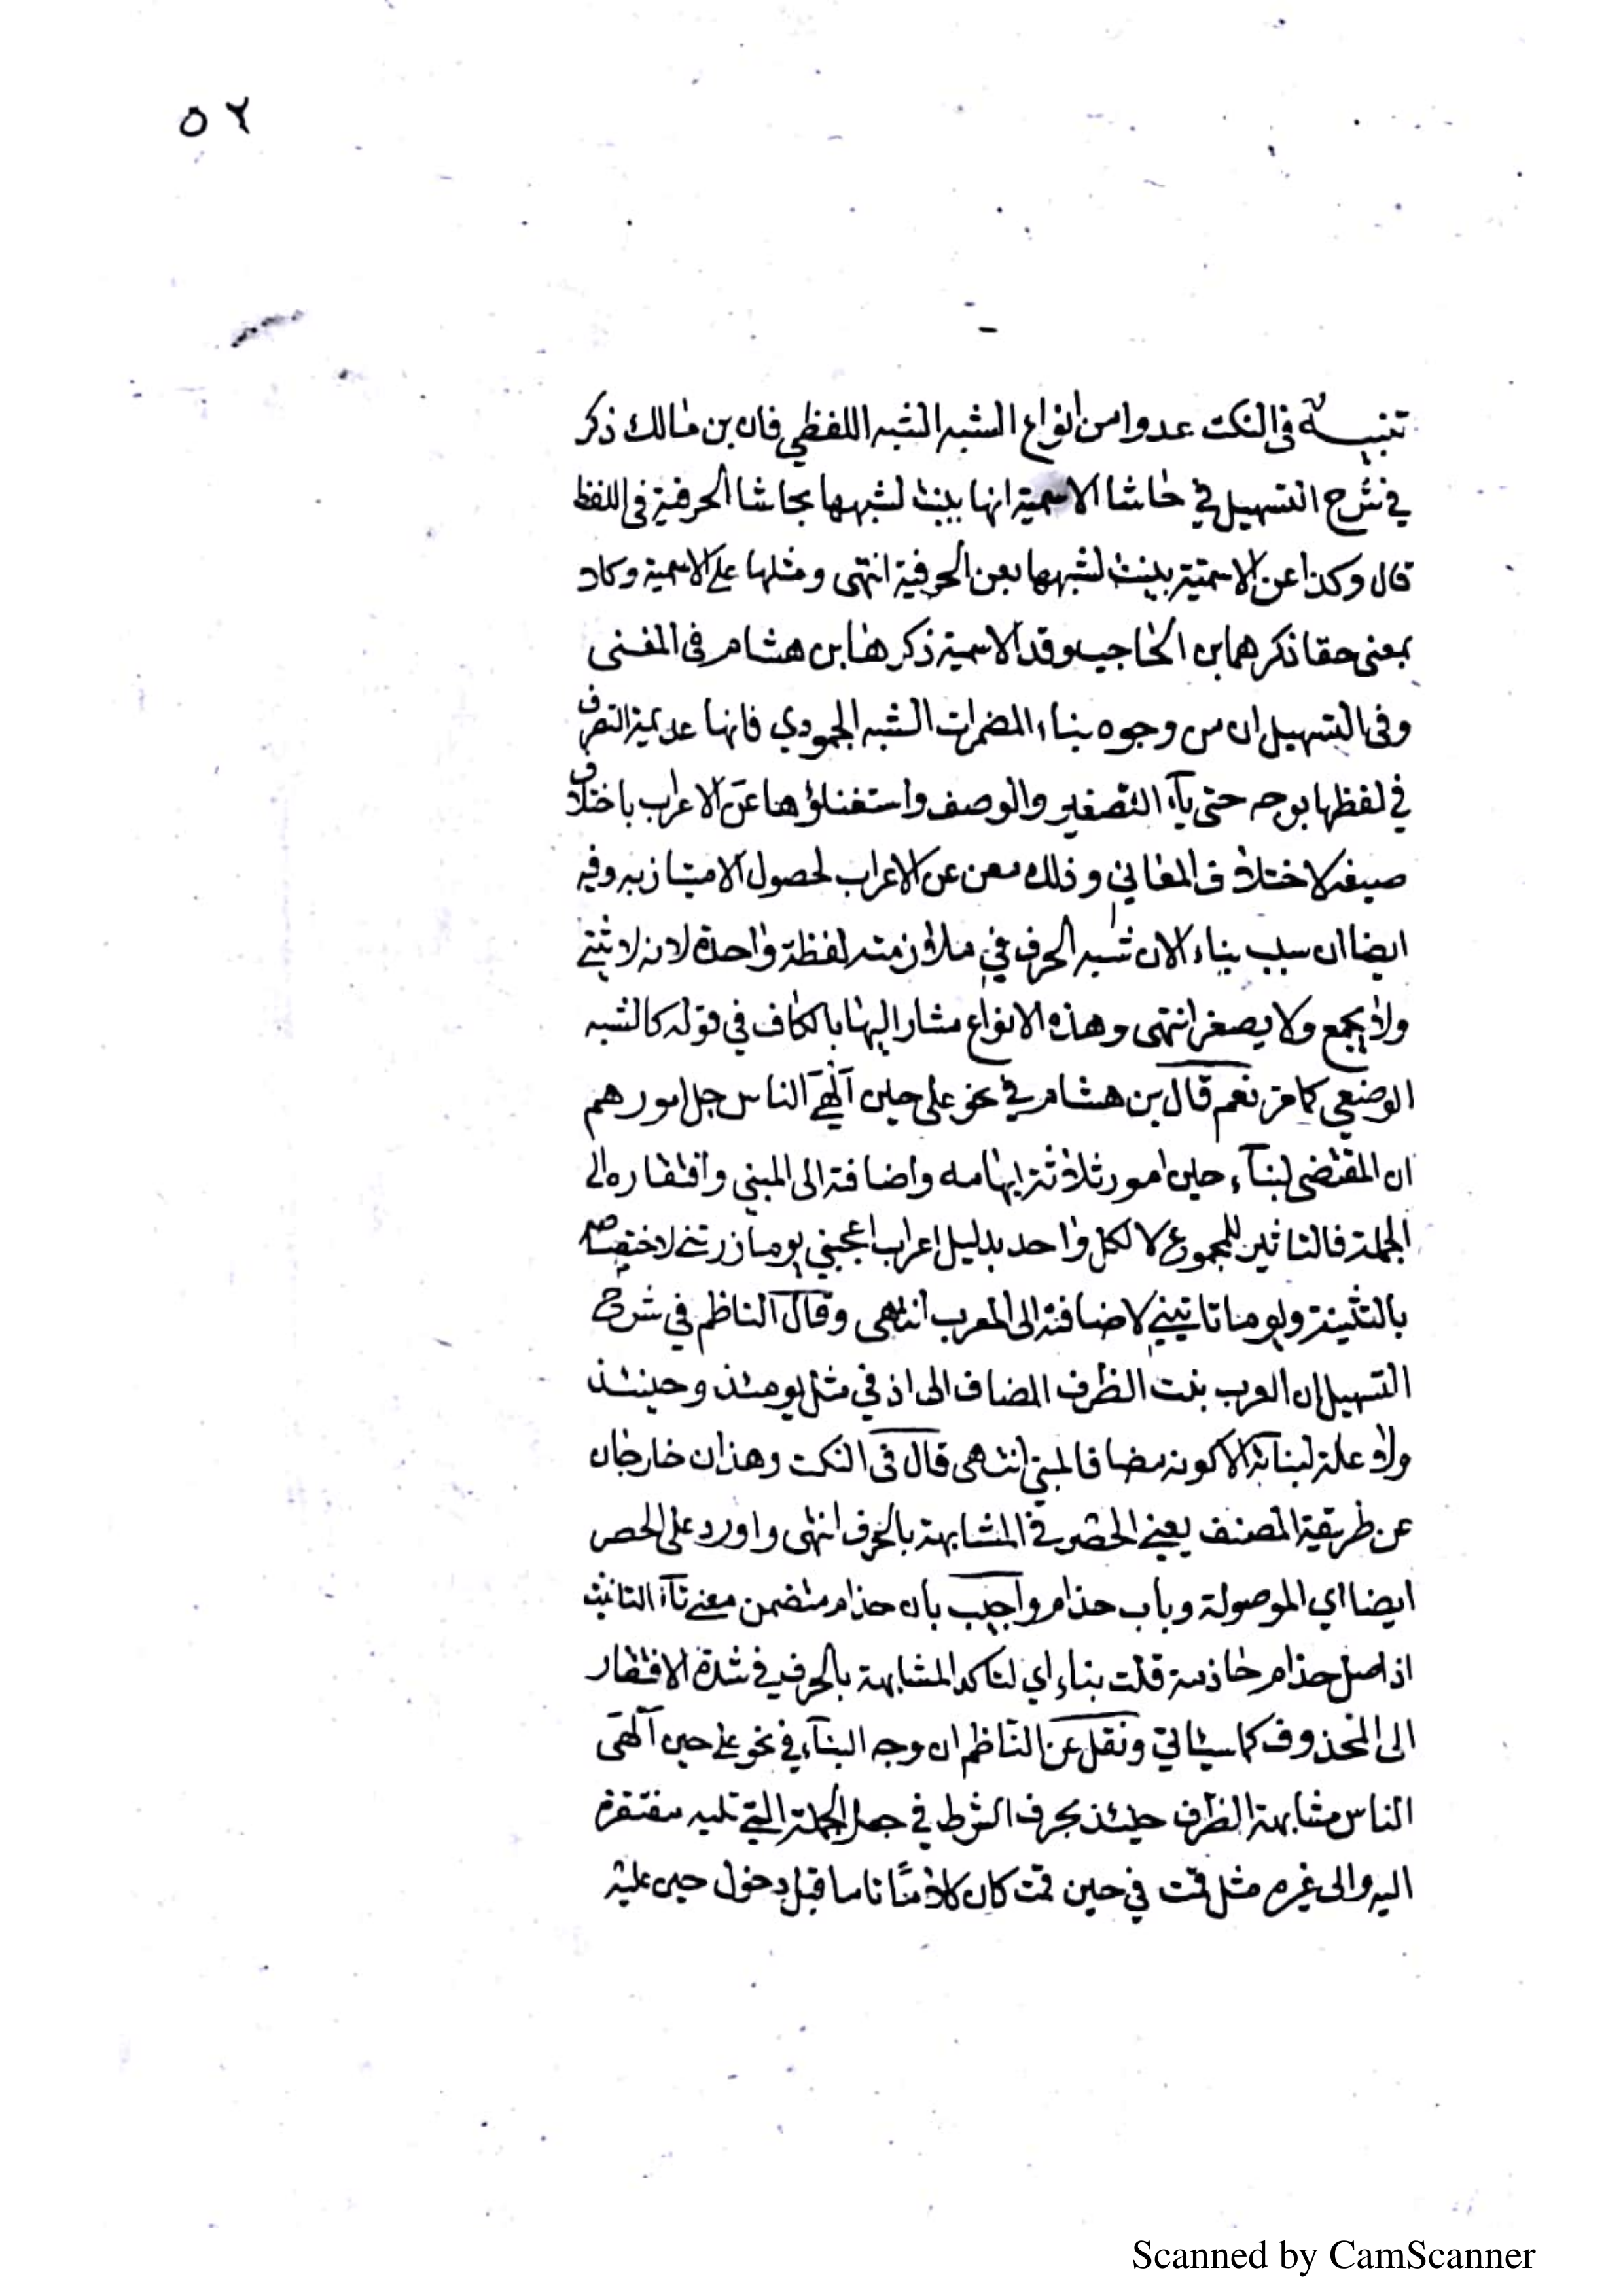 ٥٢
تنبيه في النكت عدوا من انواع الشبه الشبه اللفظي فان بن مالك ذكر
في شرح التسهيل في حاشا الاسمية انها بنيت لشبهها بحاشا الحرفية في اللفظ
قال وكذا عن الاسمية بنيت لشبهها بعن الحرفية انتهى ومثلها على الاسمية وكلا
بمعنى حقا ذكرهما بن الحاجب وقد الاسمية ذكرها بن هشام في المغنى
وفي التسهيل ان من وجوه بناء المضمرات الشبه الجمودي فانها عديمة التصرف
في لفظها بوجه حتى يآء التصغير والوصف واستغناؤها عن الاعراب باختلاف
صيغه لاختلاف المعاني وذلك مغن عن الاعراب لحصول الامتياز به وفيه
ايضا ان سبب بناء الان شبه الحرف في ملازمته لفظة واحدة لانه لا يثنى
ولا يجمع ولا يصغر انتهى وهذه الانواع مشار اليها بالكاف في قوله كالشبه
الوضعي كما مر نعم قال بن هشام في نحو على حين آلهى الناس جل امورهم
ان المقتضى لبنآء حين امور ثلاثة ابهامه واضافته الى المبني وافتقاره الى
الجملة فالتاثير للمجموع لا لكل واحد بدليل اعراب اعجبني يوما زرتني لاختصاصه
بالتثنية ويوما تاتيني لاضافته الى المعرب انتهى وقال الناظم في شرح
التسهيل ان العرب بنت الظرف المضاف الى اذ في مثل يومئذ وحينئذ
ولا علة لبنائه الا كونه مضافا لمبني انتهى قال في النكت وهذان خارجان
عن طريقة المصنف يعني الحصر في المشابهة بالحرف انتهى واورد على الحصر
ايضا اي الموصولة وباب حذام واجيب بان حذام متضمن معنى تآء التانيث
اذ اصل حذام حاذمة قلت بناء اي لتاكد المشابهة بالحرف في شدة الافتقار
الى المحذوف كما سياتي ونقل عن الناظم ان وجه البنآء في نحو على حين آلهى
الناس مشابهة الظرف حينئذ بحرف الشرط في جعل الجملة التي تليه مفتقرة
اليه والى غيره مثل قمت في حين قمت كان كلاما تاما قبل دخول حين عليه
Scanned by CamScanner